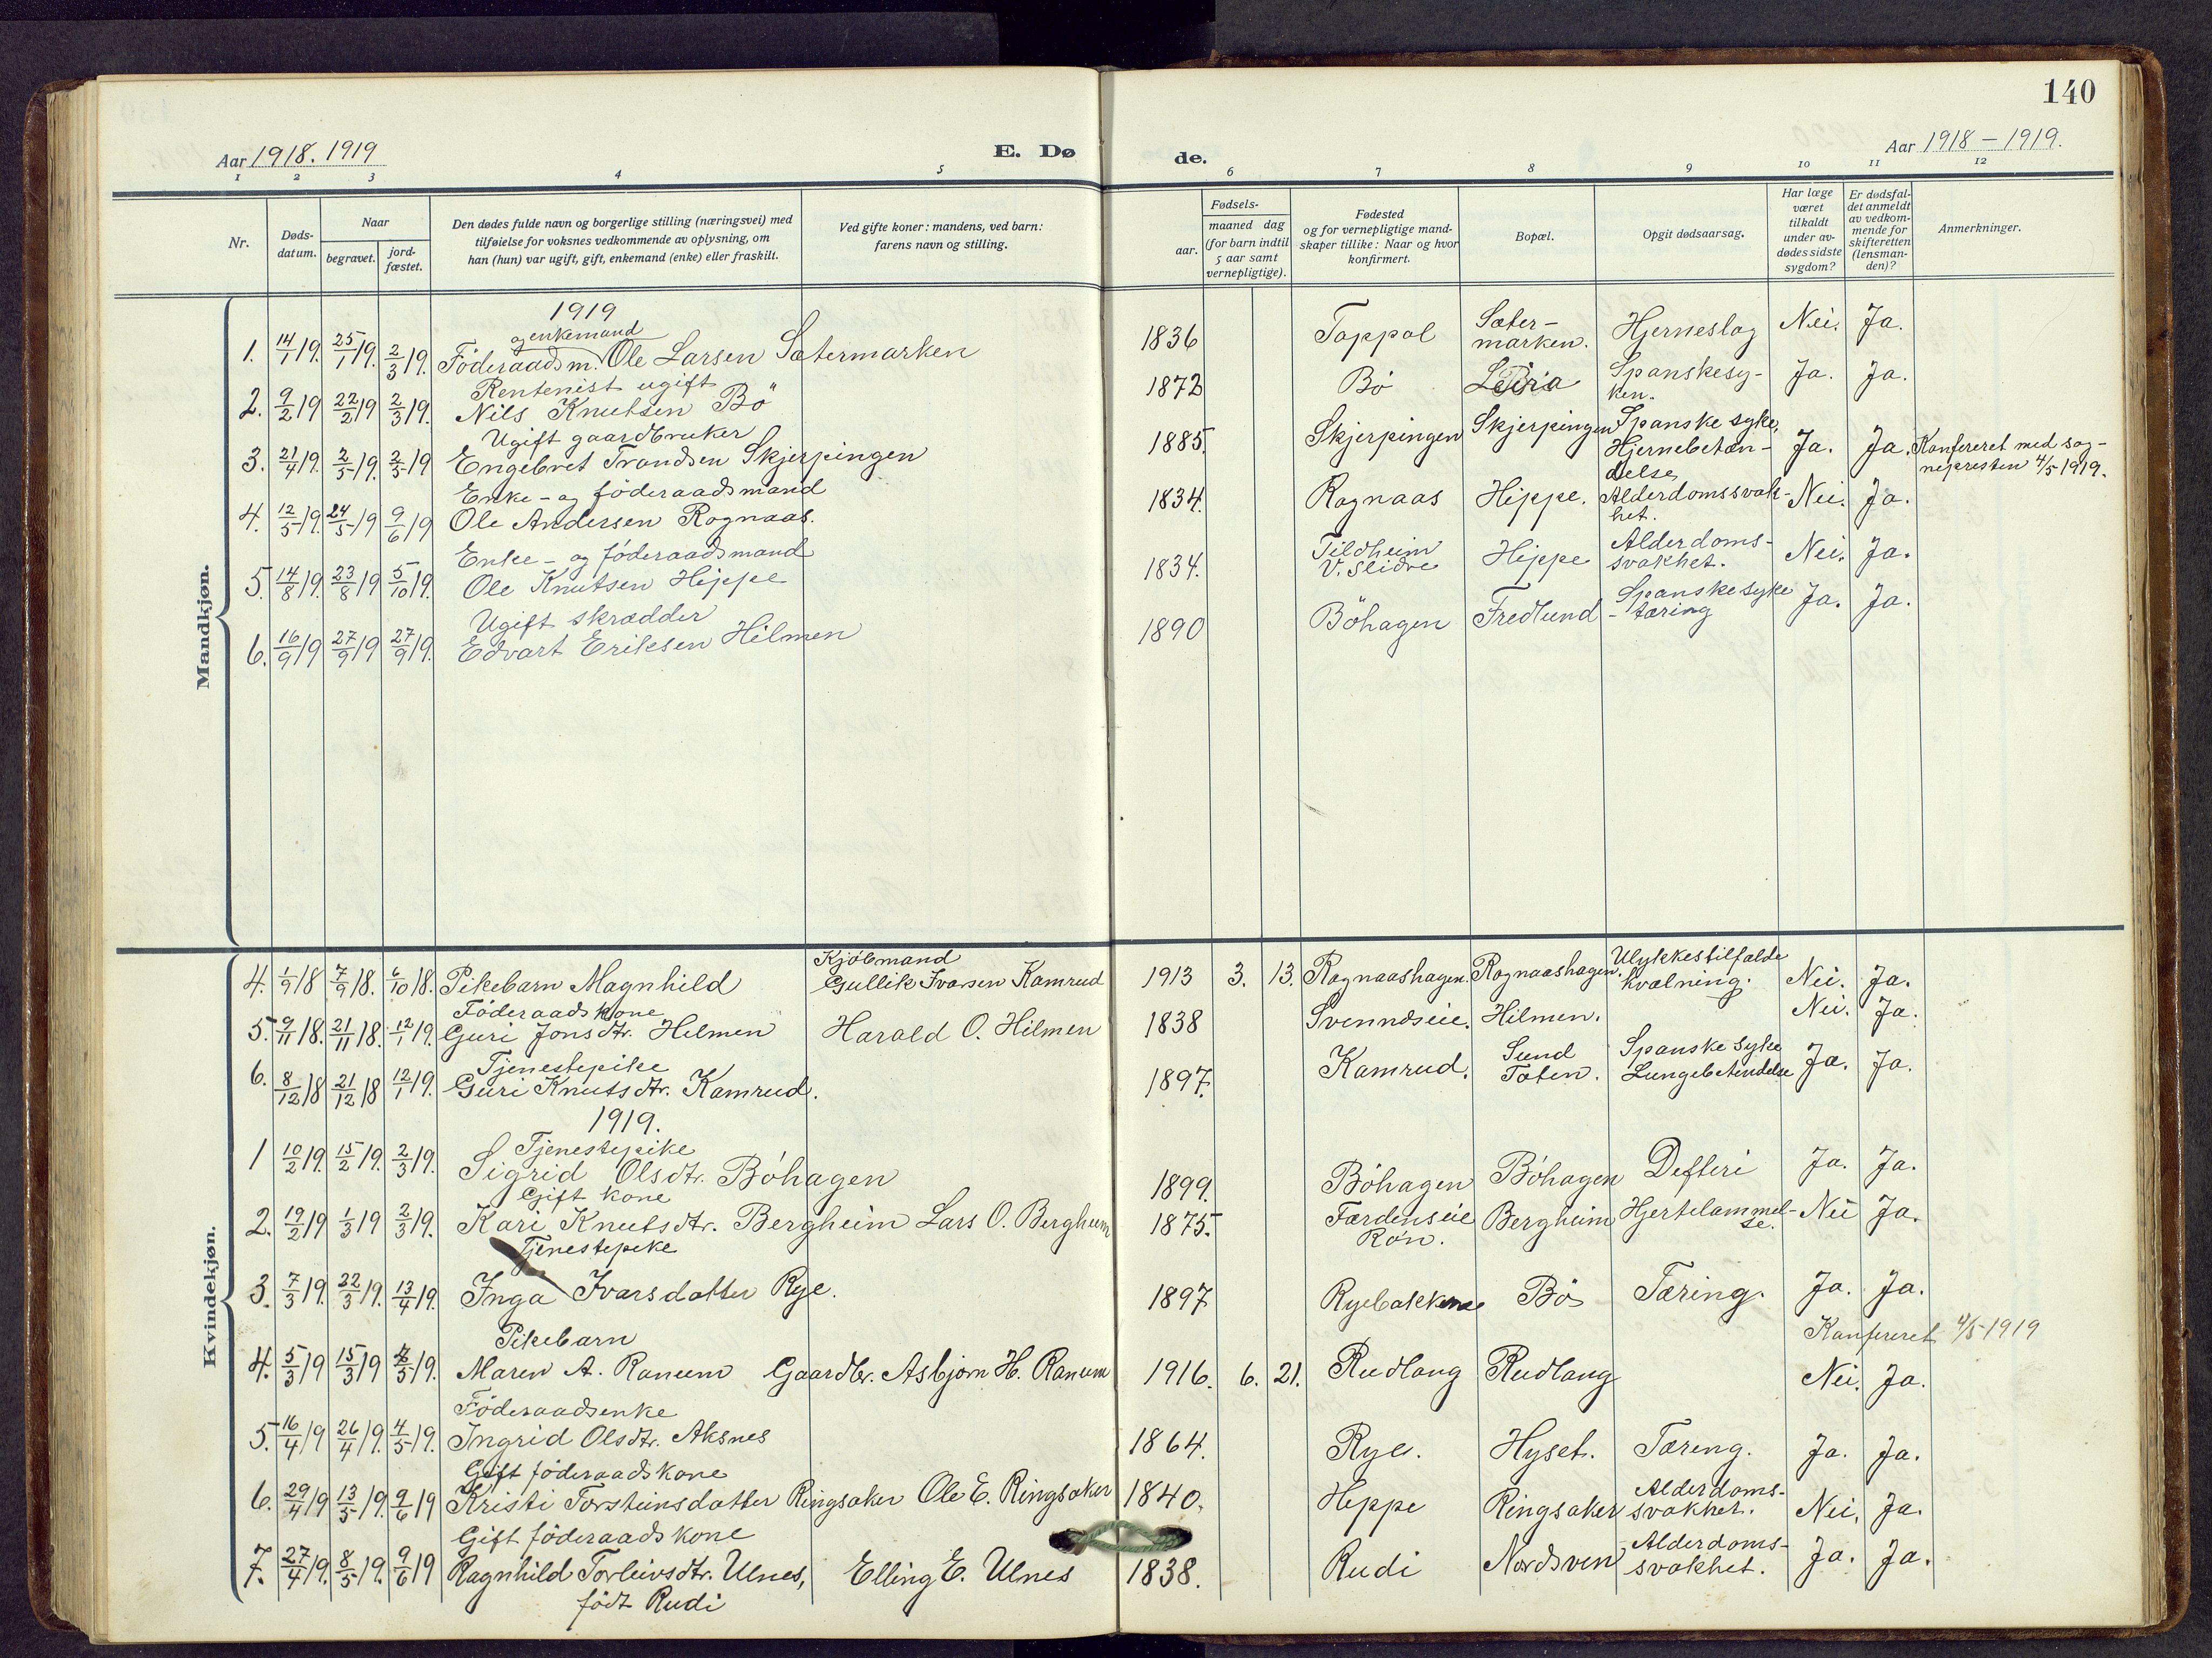 140
Aar 1918. 1919
E. Dø
de.
Aar 1918 - 1919.
1 2 3 4 5 6 7 8 9 10 11 12
Nr.
Døds-
datum.
Naar
begravet.
jord-
fæstet.
Den dødes fulde navn og borgerlige stilling (næringsvei) med
tilføielse for voksnes vedkommende av oplysning, om
han (hun) var ugift, gift, enkemand (enke) eller fraskilt.
Ved gifte koner: mandens, ved barn:
farens navn og stilling.
Fødsels-
aar.
maaned dag
(for barn indtil
5 aar samt
vernepligtige).
Fødested
og for vernepligtige mand-
skaper tillike: Naar og hvor
konfirmert.
Bopæl.
Opgit dødsaarsag.
Har læge
været
tilkaldt
under av-
dødes sidste
sygdom?
Er dødsfal-
det anmeldt
av vedkom-
mende for
skifteretten
(lensman-
den)?
Anmerkninger.
Mandkjøn.
1919
og enkemand
1. 14/1 19. 25/1 19. 2/3 19. Föderaadsm. Ole Larsen Sætermarken 1836 Tappal Sæter-
marken. Hjerneslag Nei. Ja.
Rentenist ugift
2. 9/2 19 22/2 19 2/3 19. Nils Knutsen Bö 1872 Bö Leira Spanskesy-
ken. Ja. Ja.
Ugift gaardbruker
3. 21/4 19. 2/5 19. 2/5 19 Engebret Trondsen Skjerpingen 1885. Skjerpingen Skjerpingen Spanske syke,
Hjernebetæn-
delse Ja. Ja. Konfereret med sog-
nepresten 4/5 1919.
Enke- og föderaadsmand
4. 12/5 19. 24/5 19 9/6 19 Ole Andersen Rognaas. 1834. Rognaas Hippe. Alderdomssvak-
het. Nei. Ja.
Enke- og föderaadsmand
5. 14/8 19. 23/8 19 5/10 19. Ole Knutsen Hippe 1834. Tildheim
V. Slidre Hippe Alderdoms-
svakhet. Nei. Ja.
Ugift skrædder
6. 16/9 19 27/9 19 27/9 19. Edvart Eriksen Hilmen 1890 Böhagen Fredlund Spanskesyke
- tæring Ja. Ja.
Kvindekjøn.
Kjöbmand
4. 1/9 18 7/9 18. 6/10 18. Pikebarn Magnhild Gullik Ivarsen Kamrud 1913 3. 13. Rognaashagen. Rognaashagen. Ulykkestilfælde
kvælning. Nei. Ja.
Föderaadskone
5. 9/11 18. 21/11 18. 12/1 19. Guri Jonsdtr. Hilmen Harald O. Hilmen 1838 Svenndseie. Hilmen. Nei. Ja.
Tjenestepike
6. 8/12 18 21/12 18 12/1 19. Guri Knutsdtr. Kamrud. 1897. Kamrud. Sund
Toten. Spanske syke
Lungebetændelse Ja. Ja.
1919.
Tjenestepike
1 10/2 19. 15/2 19. 2/3 19. Sigrid Olsdtr. Böhagen 1899. Böhagen Böhagen Defteri Ja. Ja.
Gift kone
2. 19/2 19 1/3 19 2/3 19. Kari Knutsdtr. Bergheim Lars O. Bergheim 1875. Færdenseie
Røn. Bergheim Hjertelammel-
se. Nei Ja.
Tjenestepike
3. 7/3 19. 22/3 19. 13/4 19. Inga Ivarsdatter Rye. 1897 Ryebakkene Bö Tæring. Ja. Ja.
Konfereret 4/5 1919
Pikebarn
4. 5/3 19 15/3 19 4/5 19. Maren A. Ranum Gaardbr. Asbjørn H. Ranum 1916. 6. 21. Rudlang Rudlang Nei. Ja.
Föderaadsenke
5. 16/4 19 26/4 19. 4/5 19. Ingrid Olsdtr. Aksnes 1864. Rye. Hyset. Tæring. Ja. Ja.
Gift föderaadskone
6. 29/4 19 13/5 19. 9/6 19 Kristi Torsteinsdatter Ringsaker Ole E. Ringsaker 1840. Hippe Ringsaker Alderdoms-
svakhet. Nei. Ja.
Gift föderaadskone
7. 27/4 19. 8/5 19. 9/6 19 Ragnhild Torleivsdtr. Ulnes, Elling E. Ulnes 1838. Rudi Nordsven Alderdoms-
svakhet. Ja. Ja.
födt Rudi